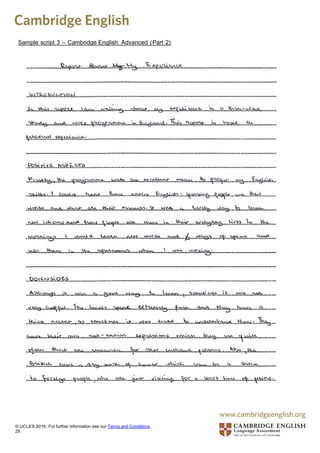 Cambridge English
Sample script 3 – Cambridge English: Advanced (Part 2)
Report About My Experience
INTRODUCTION
In this report I am writing about my experience in a three-week
study and work programme in England. This report is based on
personal experience.
POSITIVE ASPECTS
Firstly, the programme was an excellent mean to prosper my English
skills. I could hear how native English-speaking people use their
words and how use their . It was a lovely way to learn
new idioms and how people use them in their everyday lives. In the
mornings I would learn new words and ways of speech and
use them in the afternoons when I was working.
DOWNSIDES
Although it was a great way to learn, sometimes it was not
very helpful. The locals speak extremely fast and they have a
thick accent, so sometimes it was hard to understand them. They
have their own well-known expressions which they use quite
often that are for other cultural persons. Also the
British have a dry sense of humor which can be a
to foreign people, who are just visiting for a short time of period.
www.cambridgeenglish.org
© UCLES 2016. For further information see our Terms and Conditions.
29
CAMBRIDGE ENGLISH
Language Assessment
Part of the University of Cambridge